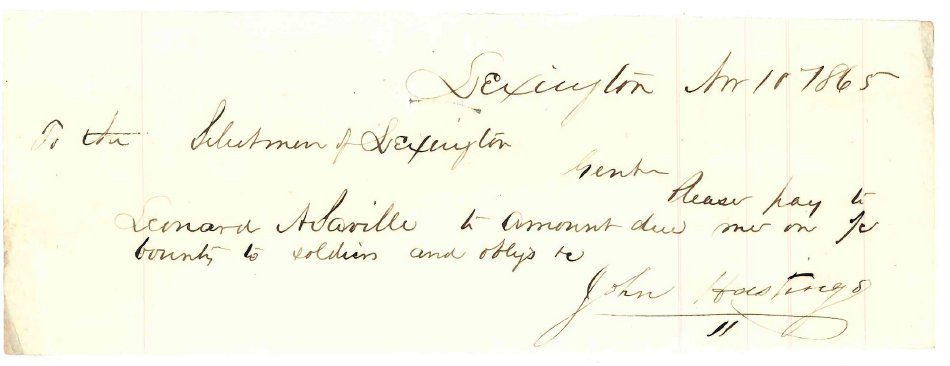 Lexington Nov 10 1865
To the Selectmen of Lexington
Gentn
Please pay to
Leonard A Saville to amount due me on a/c
bounty to soldiers and oblige &c
John Hastings